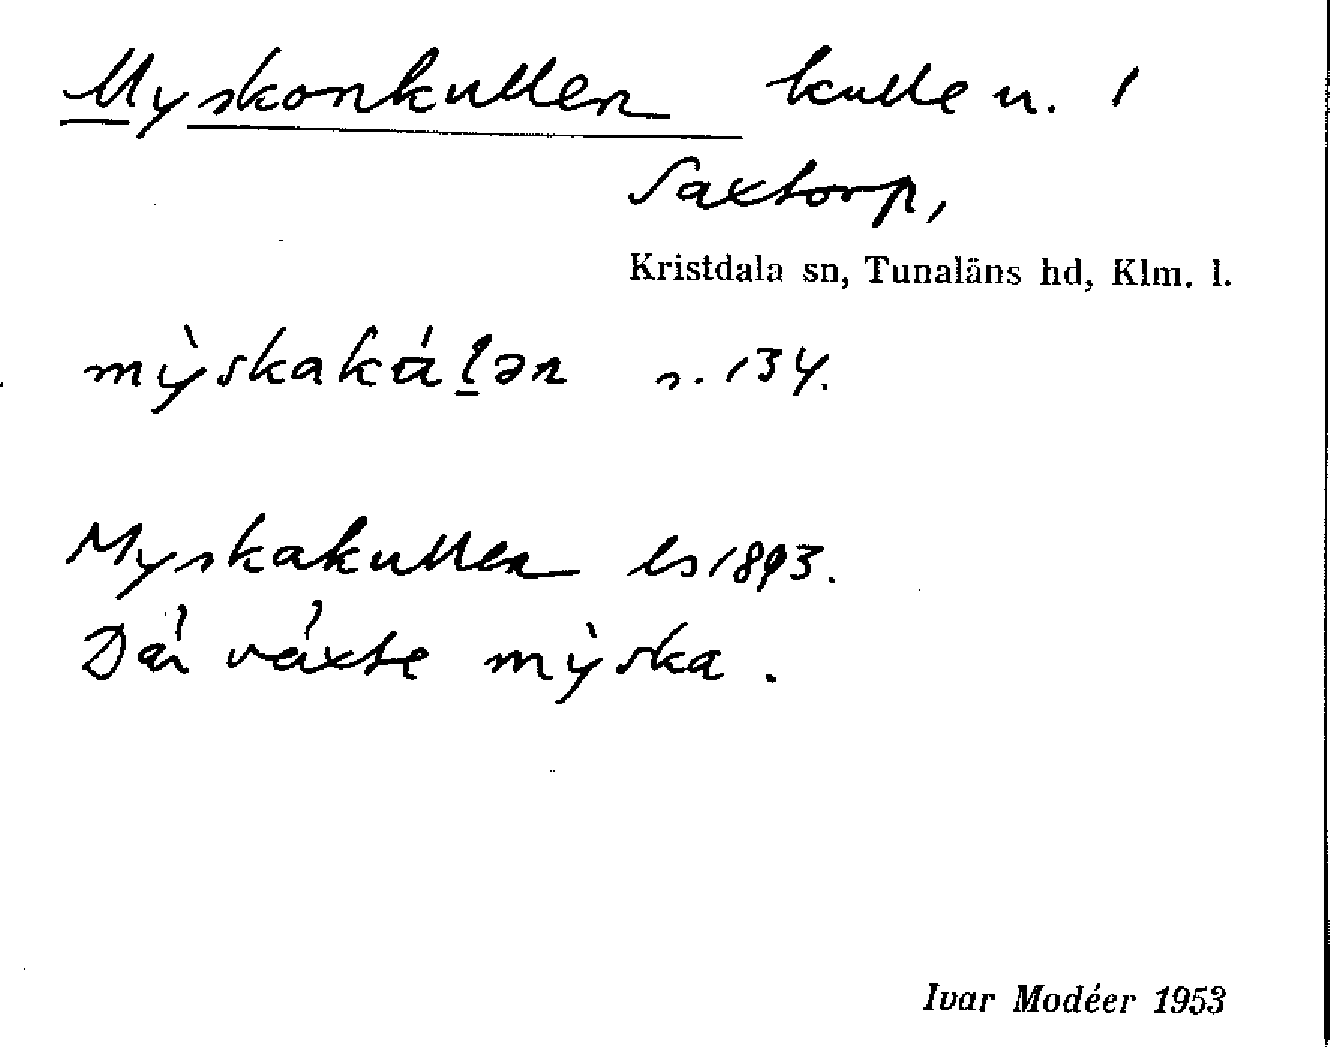 Myskonkullen kulle n. 1
Saxtorp,
Kristdala sn, Tunaläns hd, Klm. l.
mỳskakálən n. 134.
Myskakullen ls 1893.
Där växte mỳska.
Ivar Modéer 1953